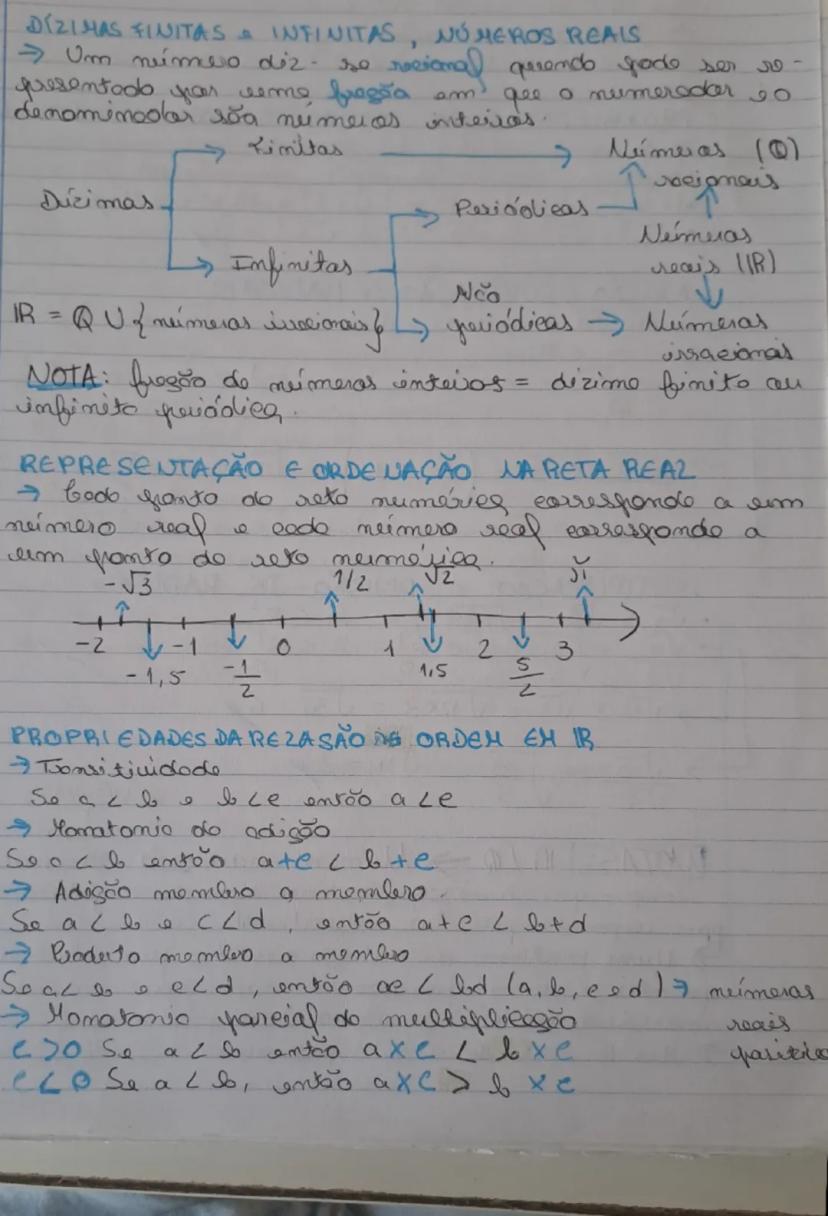 DÍZIMAS FINITAS e INFINITAS, NÚMEROS REAIS
→ Um número diz-se racional quando pode ser re-
presentado por uma fração em que o numerador e o
denominador são números inteiros.
Dízimas
Finitas → Números (Q)
racionais
Periódicas
Números
reais (IR)
Infinitas
Não
periódicas → Números
irracionais
IR = Q U {números irracionais}
NOTA: fração de números inteiros = dízima finita ou
infinita periódica.
REPRESENTAÇÃO E ORDENAÇÃO NA RETA REAL
→ Cada ponto da reta numérica corresponde a um
número real e cada número real corresponde a
um ponto da reta numérica.
-√3 1/2 √2 π
-2 -1 0 1 2 3
-1,5 -1/2 1,5 5/2
PROPRIEDADES DA RELASÃO DE ORDEM EM IR
→ Transitividade
Se a < b e b < c então a < c
→ Monotonia da adição
Se a < b então a+c < b+c
→ Adição membro a membro.
Se a < b e c < d, então a+c < b+d
→ Produto membro a membro
Se a < b e c < d, então ac < bd (a, b, c e d) → números
reais
positivos
→ Monotonia parcial da multiplicação
c > 0 Se a < b então a x c < b x c
c < 0 Se a < b, então a x c > b x c